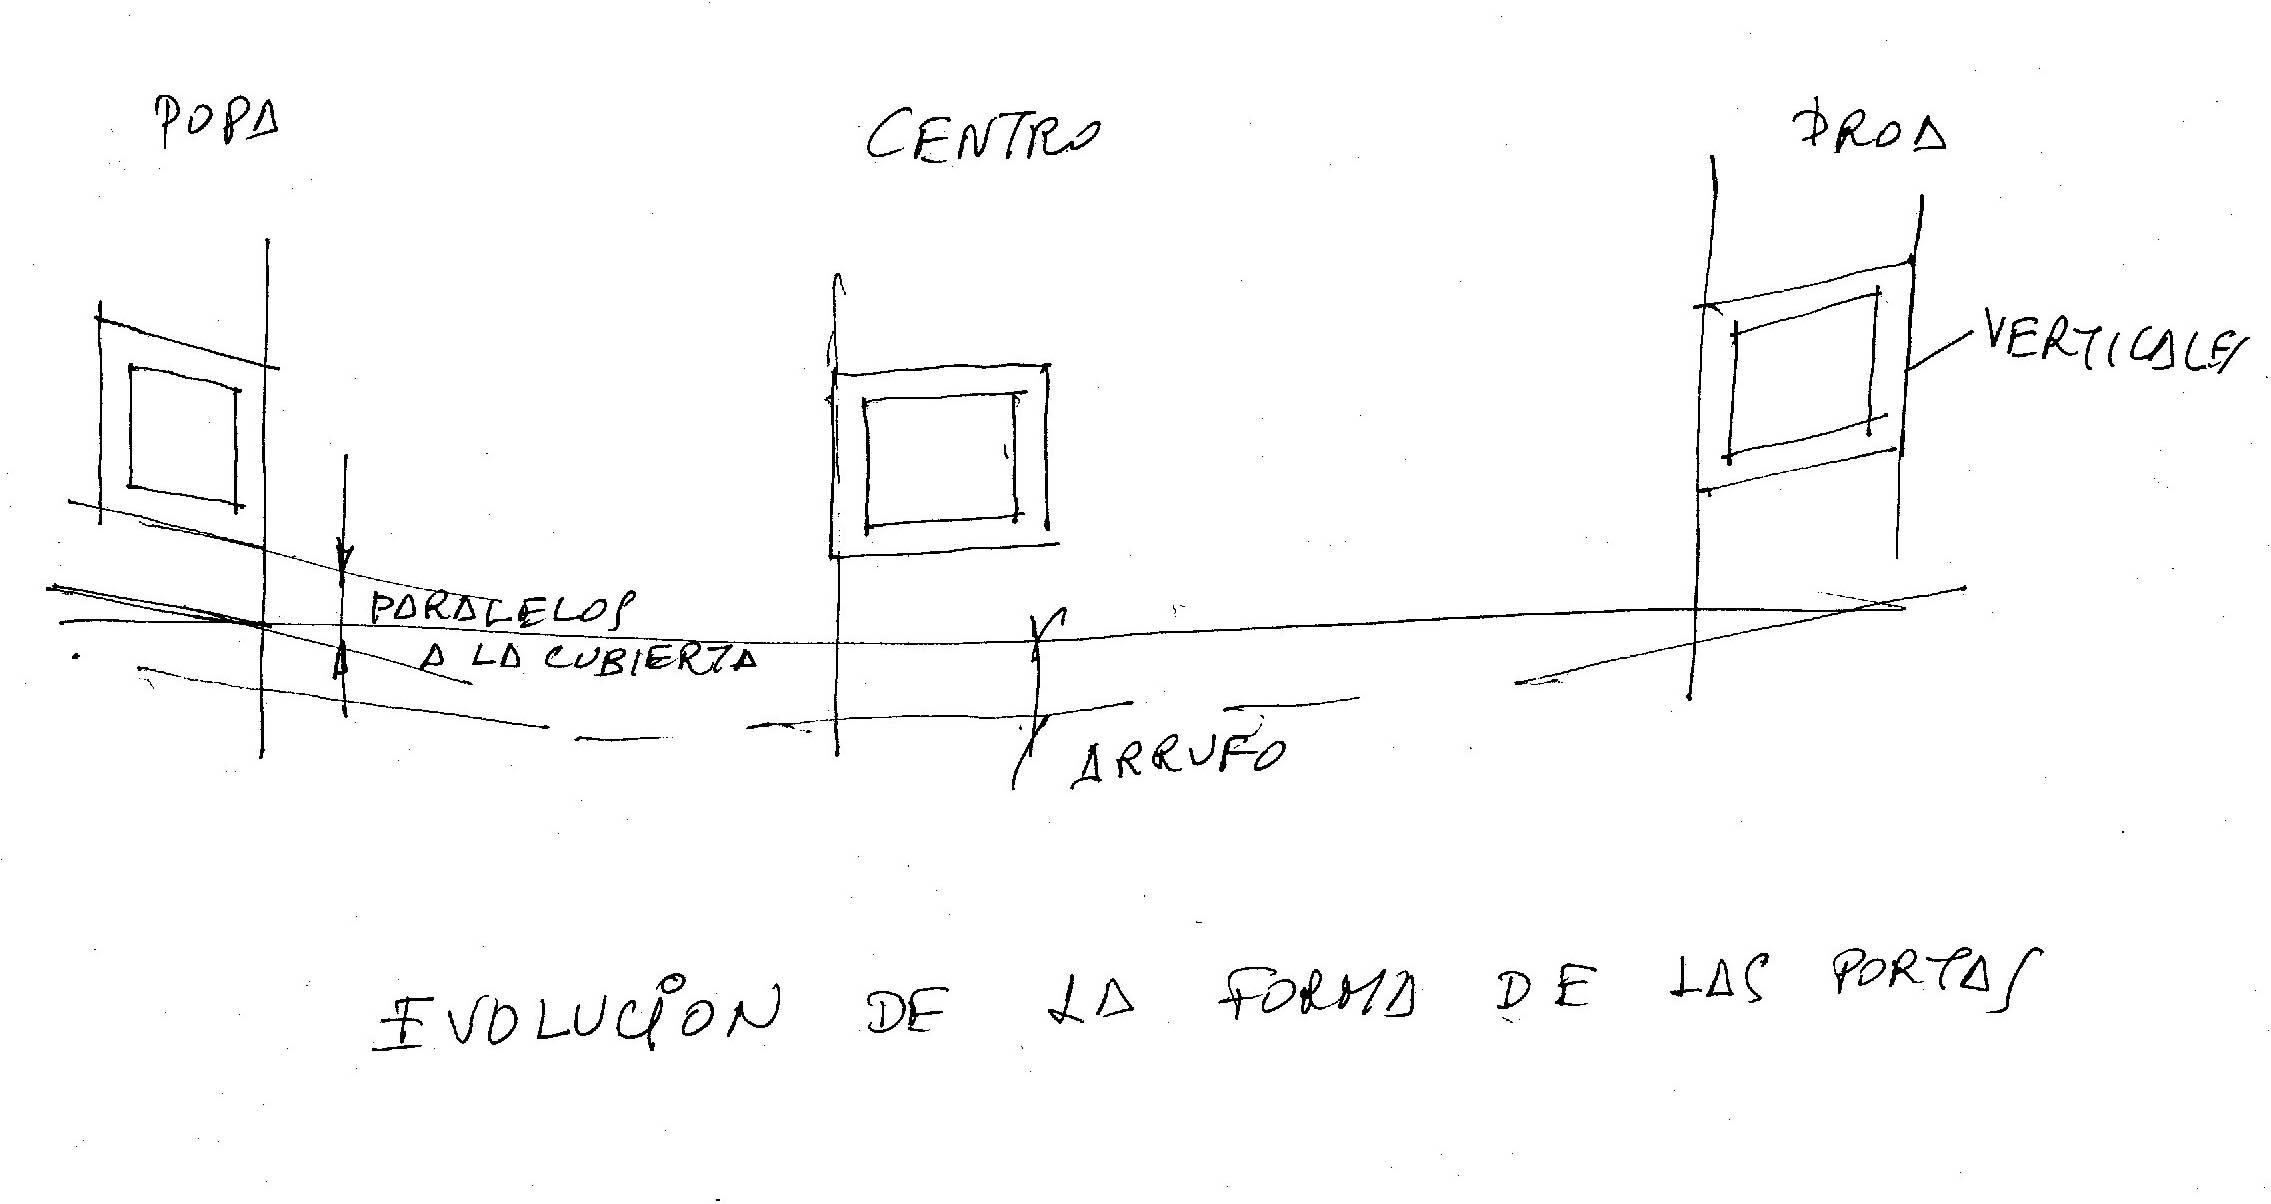 POPA
CENTRO
PROA
VERTICALES
PARALELOS
A LA CUBIERTA
ARRUFO
EVOLUCIÓN DE LA FORMA DE LAS PORTAS